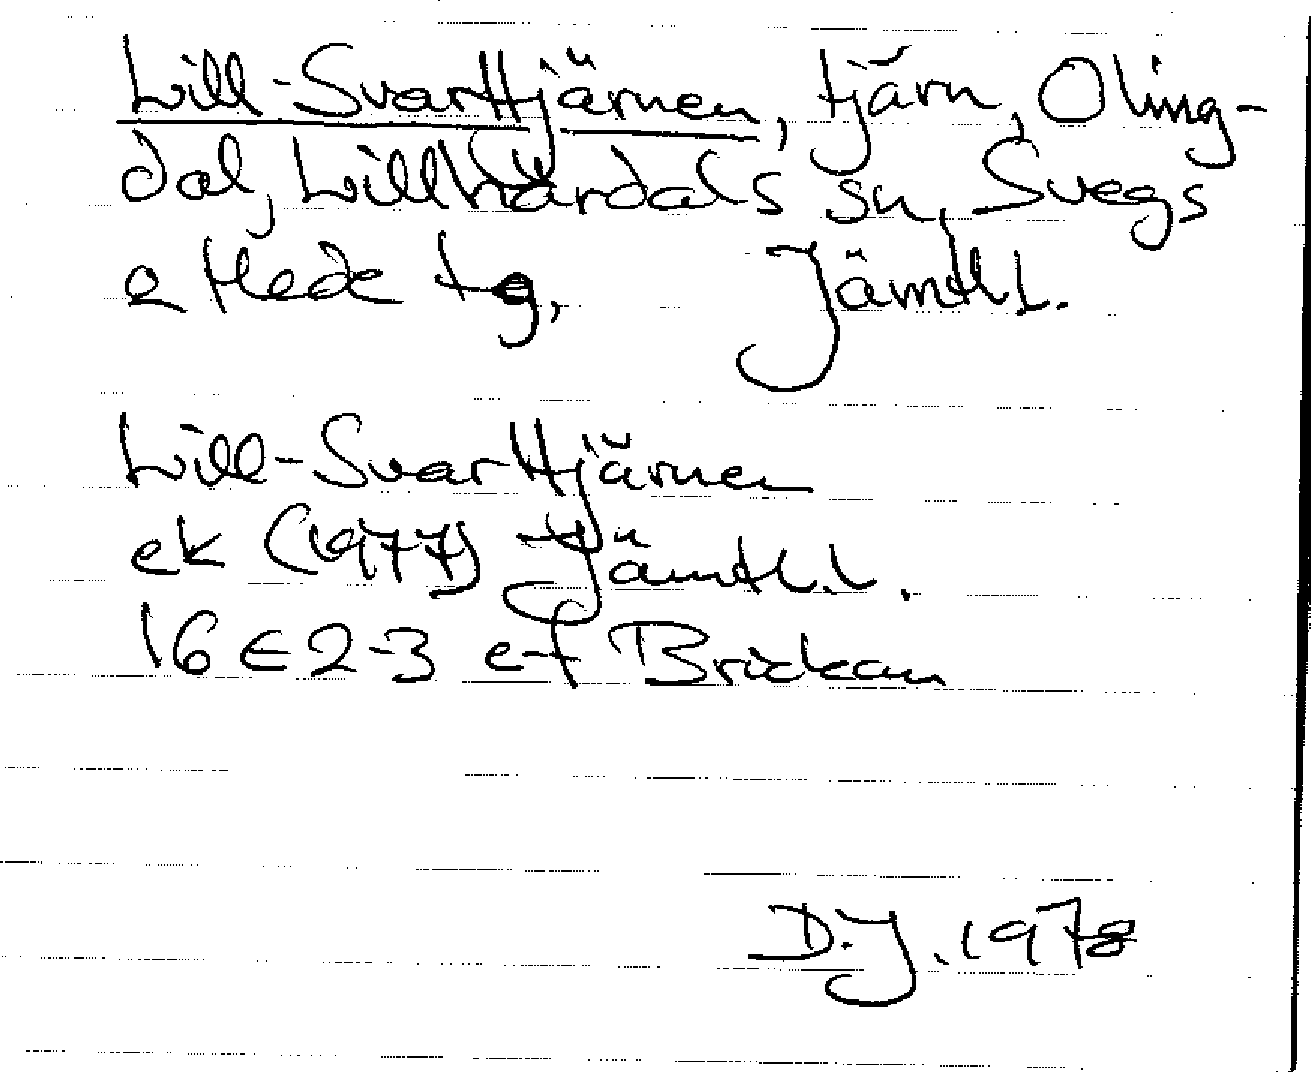 Lill-Svarttjärnen, tjärn, Oling-
dal, Lillhärdals sn, Svegs
o Hede tg, Jämtl l.
Lill-Svarttjärnen
ek (1977) Jämtl. l.
16E 2-3 ef Brickan
D.J. 1978